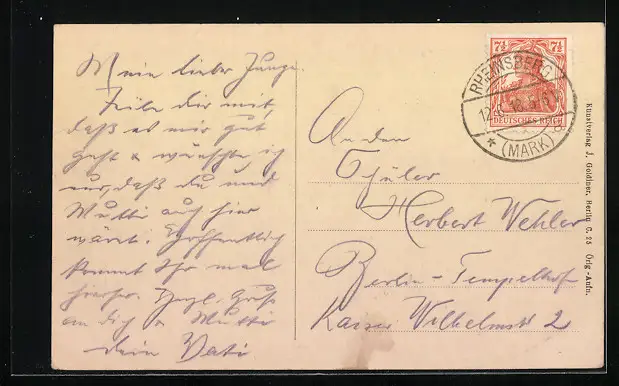 Mein lieber Junge.
Teile dir mit,
daß es mir gut
geht & wünschte ich
nur, daß du und
Mutti auch hier
wäret. Hoffentlich
kommt Ihr mal
hierher. Herzl. Gruß
an dich & Mutti
dein Vati
7½ 7½
DEUTSCHES REICH
RHEINSBERG
(MARK)
An den
Schüler
Herbert Wehler
Berlin-Tempelhof
Kaiser Wilhelmstr 2
Kunstverlag J. Goldiner, Berlin C. 25 Orig-Aufn.